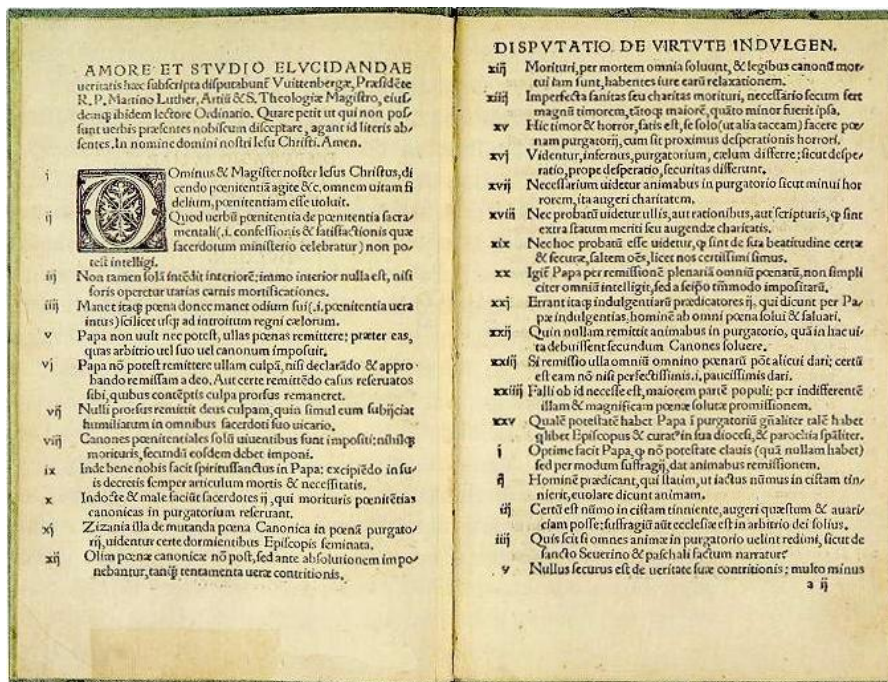 AMORE ET STVDIO ELVCIDANDAE
ueritatis hæc subscripta disputabunt̃ Vuittenbergæ, Præsidẽte
R. P. Martino Luther, Artiũ & S. Theologiæ Magistro, eius⸗
demq; ibidem lectore Ordinario. Quare petit ut qui non pos⸗
sunt uerbis præsentes nobiscum disceptare, agant id literis ab⸗
sentes. In nomine domini nostri Iesu Christi. Amen.
i DOminus & Magister noster Iesus Christus, di
cendo pœnitentiã agite &c, omnem uitam fi
delium, pœnitentiam esse uoluit.
ij Quod uerbũ pœnitentia de pœnitentia sacra⸗
mentali (.i. confessionis & satisfactionis quæ
sacerdotum ministerio celebratur) non po⸗
test intelligi.
iij Non tamen solã intẽdit interiorẽ; immo interior nulla est, nisi
foris operetur uarias carnis mortificationes.
iiij Manet itaq; pœna donec manet odium sui (.i. pœnitentia uera
intus) scilicet usq; ad introitum regni cælorum.
v Papa non uult nec potest, ullas pœnas remittere; præter eas,
quas arbitrio uel suo uel canonum imposuit.
vj Papa nõ potest remittere ullam culpã, nisi declarãdo & appro⸗
bando remissam a deo. Aut certe remittẽdo casus reseruatos
sibi, quibus contẽptis culpa prorsus remaneret.
vij Nulli prorsus remittit deus culpam, quin simul eum subijciat
humiliatum in omnibus sacerdoti suo uicario.
viij Canones pœnitentiales solũ uiuentibus sunt impositi; nihilq;
morituris, secundũ eosdem debet imponi.
ix Inde bene nobis facit spiritussanctus in Papa; excipiẽdo in su⸗
is decretis semper articulum mortis & necessitatis.
x Indocte & male faciũt sacerdotes ij, qui morituris pœnitẽtias
canonicas in purgatorium reseruant.
xj Zizania illa de mutanda pœna Canonica in pœnã purgato⸗
rij, uidentur certe dormientibus Episcopis seminata.
xij Olim pœnæ canonicæ nõ post, sed ante absolutionem impo⸗
nebantur, tanq̃ tentamenta ueræ contritionis.
DISPVTATIO DE VIRTVTE INDVLGEN.
xiij Morituri, per mortem omnia soluunt, & legibus canonũ mor⸗
tui iam sunt, habentes iure earũ relaxationem.
xiiij Imperfecta sanitas seu charitas morituri, necessario secum fert
magnũ timorem, tãtoq; maiorẽ, quãto minor fuerit ipsa.
xv Hic timor & horror, satis est, se solo (ut alia taceam) facere pœ⸗
nam purgatorij, cum sit proximus desperationis horrori.
xvj Videntur, infernus, purgatorium, cælum differre; sicut despe⸗
ratio, prope desperatio, securitas differunt.
xvij Necessarium uidetur animabus in purgatorio sicut minui hor
rorem, ita augeri charitatem.
xviij Nec probatũ uidetur ullis, aut rationibus, aut scripturis, ꝙ sint
extra statum meriti seu augendæ charitatis.
xix Nec hoc probatũ esse uidetur, ꝙ sint de sua beatitudine certæ
& securæ, saltem oẽs, licet nos certissimi simus.
xx Igit̃ Papa per remissionẽ plenariã omniũ pœnarũ, non simpli
citer omniũ intelligit, sed a seipso tm̃modo impositarũ.
xxj Errant itaq; indulgentiarũ prædicatores ij, qui dicunt per Pa⸗
pæ indulgentias, hominẽ ab omni pœna solui & saluari.
xxij Quin nullam remittit animabus in purgatorio, quã in hac ui⸗
ta debuissent secundum Canones soluere.
xxiij Si remissio ulla omniũ omnino pœnarũ põt alicui dari; certũ
est eam nõ nisi perfectissimis .i. paucissimis dari.
xxiiij Falli ob id necesse est, maiorem partẽ populi; per indifferentẽ
illam & magnificam pœnæ solutæ promissionem.
xxv Qualẽ potestatẽ habet Papa ĩ purgatoriũ gñaliter talẽ habet
q̃libet Episcopus & curat⁹ in sua diocesi, & parochia spãliter.
i Optime facit Papa, ꝙ nõ potestate clauis (quã nullam habet)
sed per modum suffragij, dat animabus remissionem.
ij Hominẽ prædicant, qui statim, ut iactus nũmus in cistam tin⸗
nierit, euolare dicunt animam.
iij Certũ est nũmo in cistam tinniente, augeri quæstum & auari⸗
ciam posse; suffragiũ aũt ecclesiæ est in arbitrio dei solius.
iiij Quis scit si omnes animæ in purgatorio uelint redimi, sicut de
sancto Seuerino & paschali factum narratur.
v Nullus securus est de ueritate suæ contritionis; multo minus
a ij